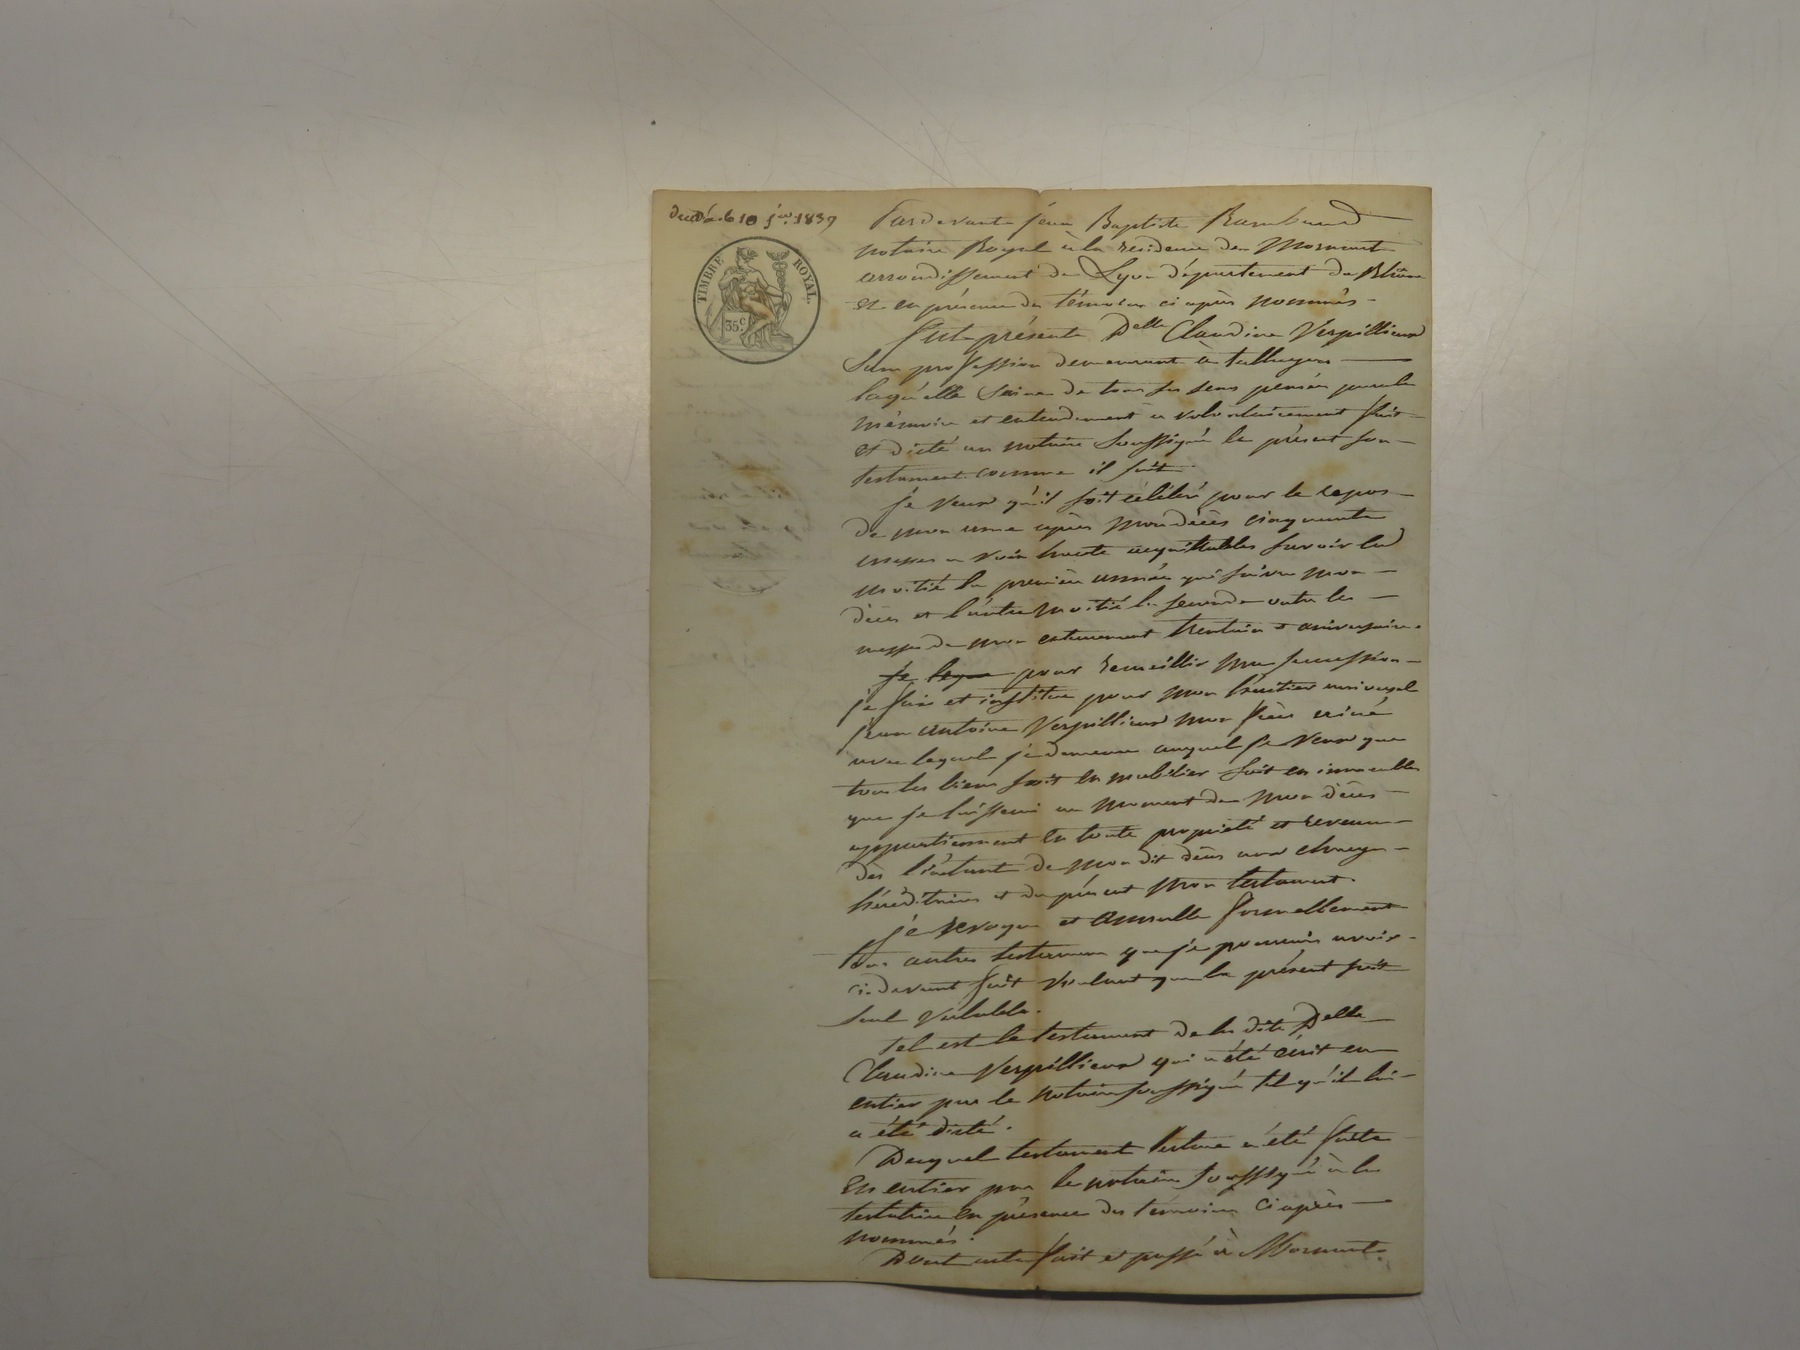 décédée le 10 jer 1839
TIMBRE ROYAL.
35 c.
Pardevant jean Baptiste Rambaud
notaire Royal à la residence de Mornant
arrondissement de Lyon département du Rhône
et en présence des témoins ci après nommés
fut présente Delle Claudine Verpillieux
Sans profession demeurant à taluyers
laquelle Saine de tous ses sens pensée parole
mémoire et entendement a volontairement fait
et dicté au notaire soussigné le présent son
testament comme il suit.
je veux qu'il soit célébré pour le repos
de mon ame après mon décès cinquante
messes a voix haute acquittables savoir la
moitié la première année qui suivra mon
décès et l'autre moitié la seconde outre les
messes de mon enterrement trentain et aniversaire.
je legue pour recueillir ma succession
je fais et institue pour mon héritier universel
jean antoine Verpillieux mon frère ainé
avec lequel je demeure auquel je veux que
tous les biens soit en mobilier soit en immeubles
que je laisserai au moment de mon décès
appartiennent en toute propriété et revenu
dès l'instant de mon dit décès aux charges
héréditaires et du présent mon testament.
je revoque et annulle formellement
tous autres testamens que je pourrais avoir
ci-devant fait voulant que le présent soit
seul valable.
tel est le testament de la dite Delle
Claudine Verpillieux qui a été écrit en
entier par le notaire soussigné tel qu'il lui
a été dicté.
Duquel testament lecture a été faite
en entier par le notaire soussigné à la
testatrice en présence des témoins ci après
nommés.
Dont acte fait et passé à Mornant